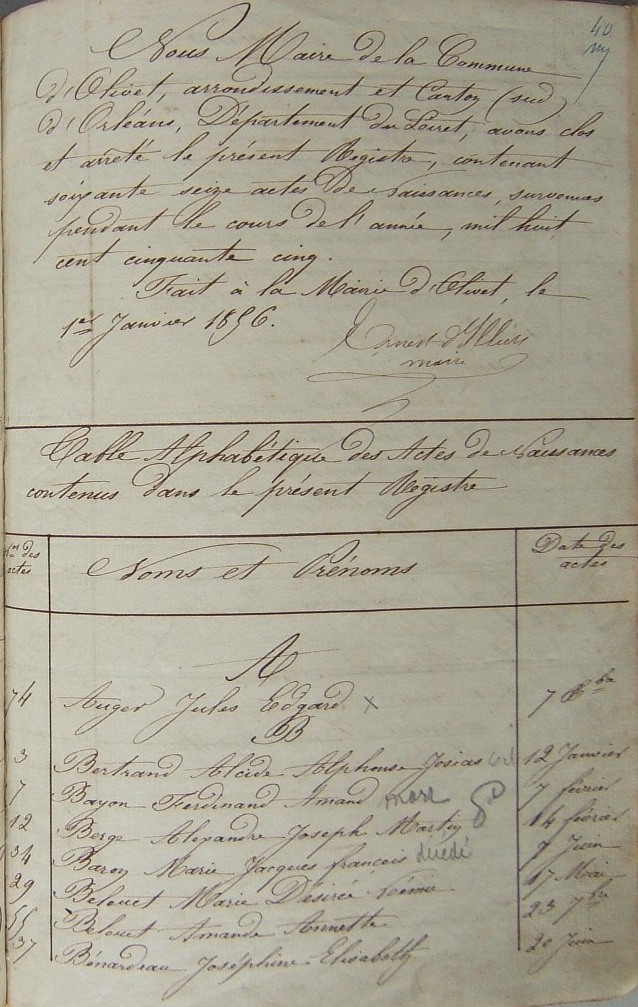 40
Nous Maire de la Commune
d'Olivet, arrondissement et Canton (sud)
d'Orléans, Département du Loiret, avons clos
et arrêté le présent Registre, contenant
soixante seize actes de Naissances, survenues
pendant le cours de l'année, mil huit
cent cinquante cinq.
Fait à la Mairie d'Olivet, le
1er Janvier 1856.
Ernest d'Illiers
maire
Table Alphabétique des Actes de Naissances
contenus dans le présent Registre
Nos des actes
Noms et Prénoms
Date des actes
A
74 Auger Jules Edgard x 7 Xbre
B
3 Bertrand Alcide Alphonse Josias 12 Janvier
7 Bayon Ferdinand Amand 7 février
12 Berge Alexandre Joseph Martin 14 février
34 Baron Marie Jacques françois décédé 7 Juin
29 Belouet Marie Désirée Noémie 17 Mai
55 Belouet Amanda Annette 23 7bre
37 Bénardeau Joséphine Elisabeth 20 Juin